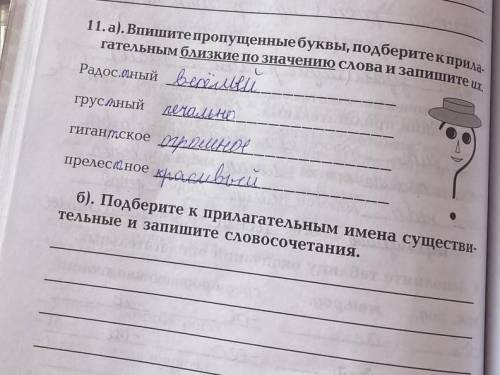 11. а). Впишите пропущенные буквы, подберите к прила-
гательным близкие по значению слова и запишите их.
Радостный весёлый
грустный печально
гигантское огромное
прелестное красивый
б). Подберите к прилагательным имена существи-
тельные и запишите словосочетания.